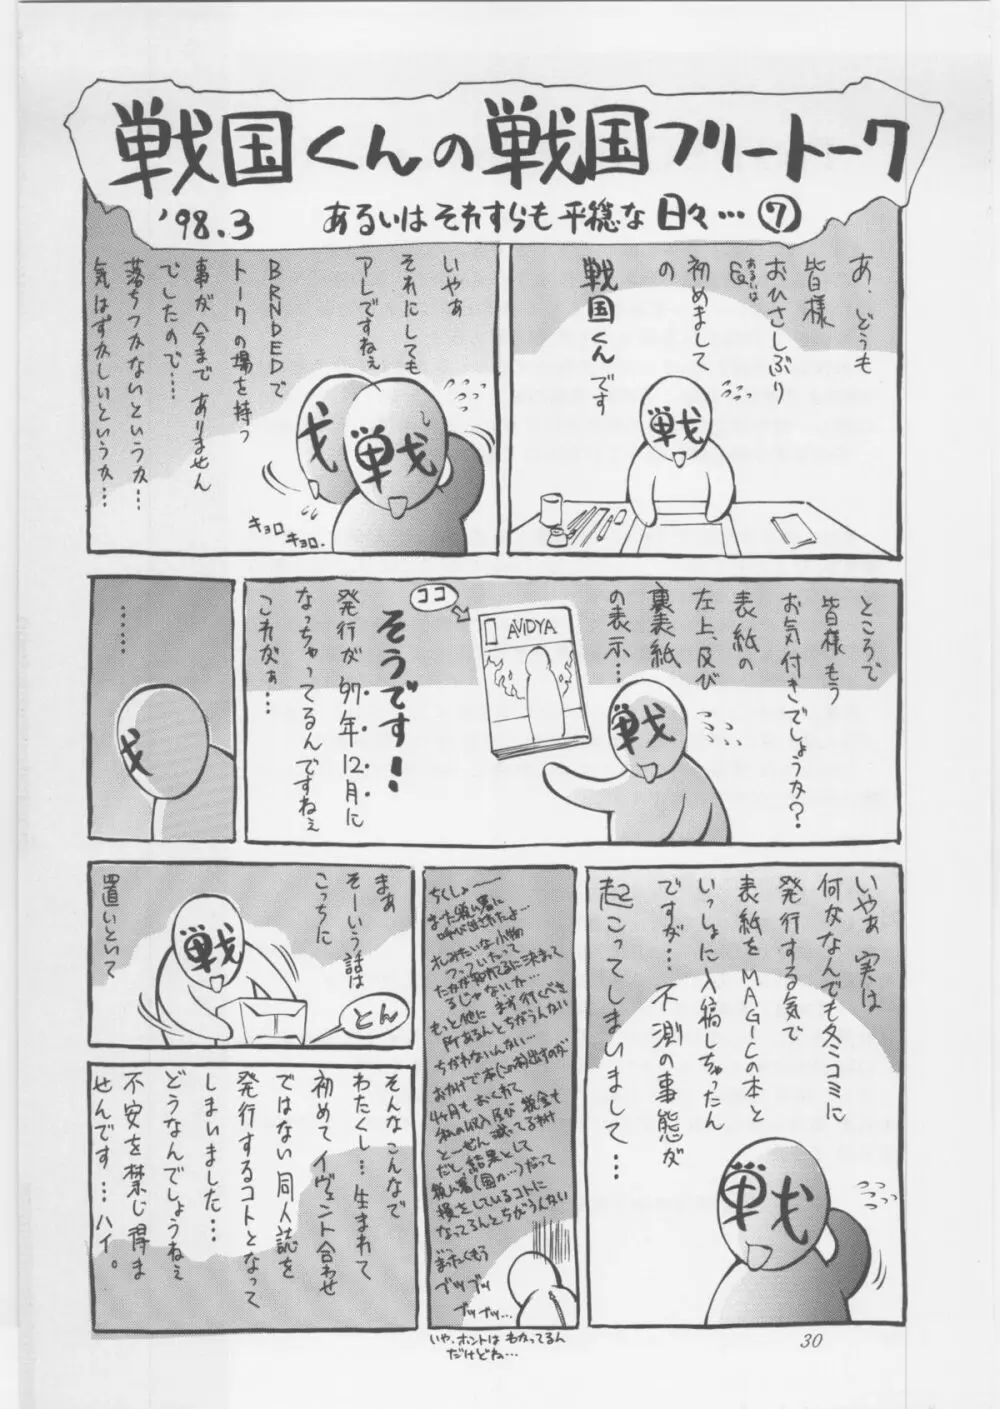 戦国くんの戦国フリートーク
'98.3
あるいはそれすらも平穏な日々…⑦
あ、どうも
皆様
おひさしぶり
&
あるいは
初めまして
の
戦国くんです
いやぁ
それにしても
アレですねぇ
BRNDEDで
トークの場を持つ
事が今までありません
でしたので…
落ちつかないというか…
気はずかしいというか…
キョロ
キョロ.
ところで
皆様もう
お気付きでしょうか?
表紙の
左上、及び
裏表紙
の表示…
ココ
AVIDYA
そうです!
発行が'97年12月に
なっちゃってるんですねぇ
これがぁ…
……
いやぁ実は
何がなんでも冬コミに
発行する気で
表紙をMAGICの本と
いっしょに入稿しちゃったん
ですが…不測の事態が
起こってしまいまして…
ちくしょーー
また税ム署に
呼び出されたよ…
オレみたいな小物
つっついたって
たかが知れてるに決まって
るじゃないか…
もっと他にまず行くべき
所あるんとちがうんかい
ちがわないんかい…
おかげで本(この本)出すのが
4ヶ月もおくれて
私の収入及び税金も
とーぜん減ってるわけ
だし結果として
税ム署(国か…)だって
損をしているコトに
なってるんとちがうんかい
まったくもう
ブツブツ
ブツブツ…
いや、ホントはわかってるん
だけどね…
まぁ
そーいう話は
こっちに
置いといて
とん
そんなこんなで
わたくし…生まれて
初めてイヴェント合わせ
ではない同人誌を
発行するコトとなって
しまいました…
どうなんでしょうねぇ
不安を禁じ得ま
せんです…ハイ。
30